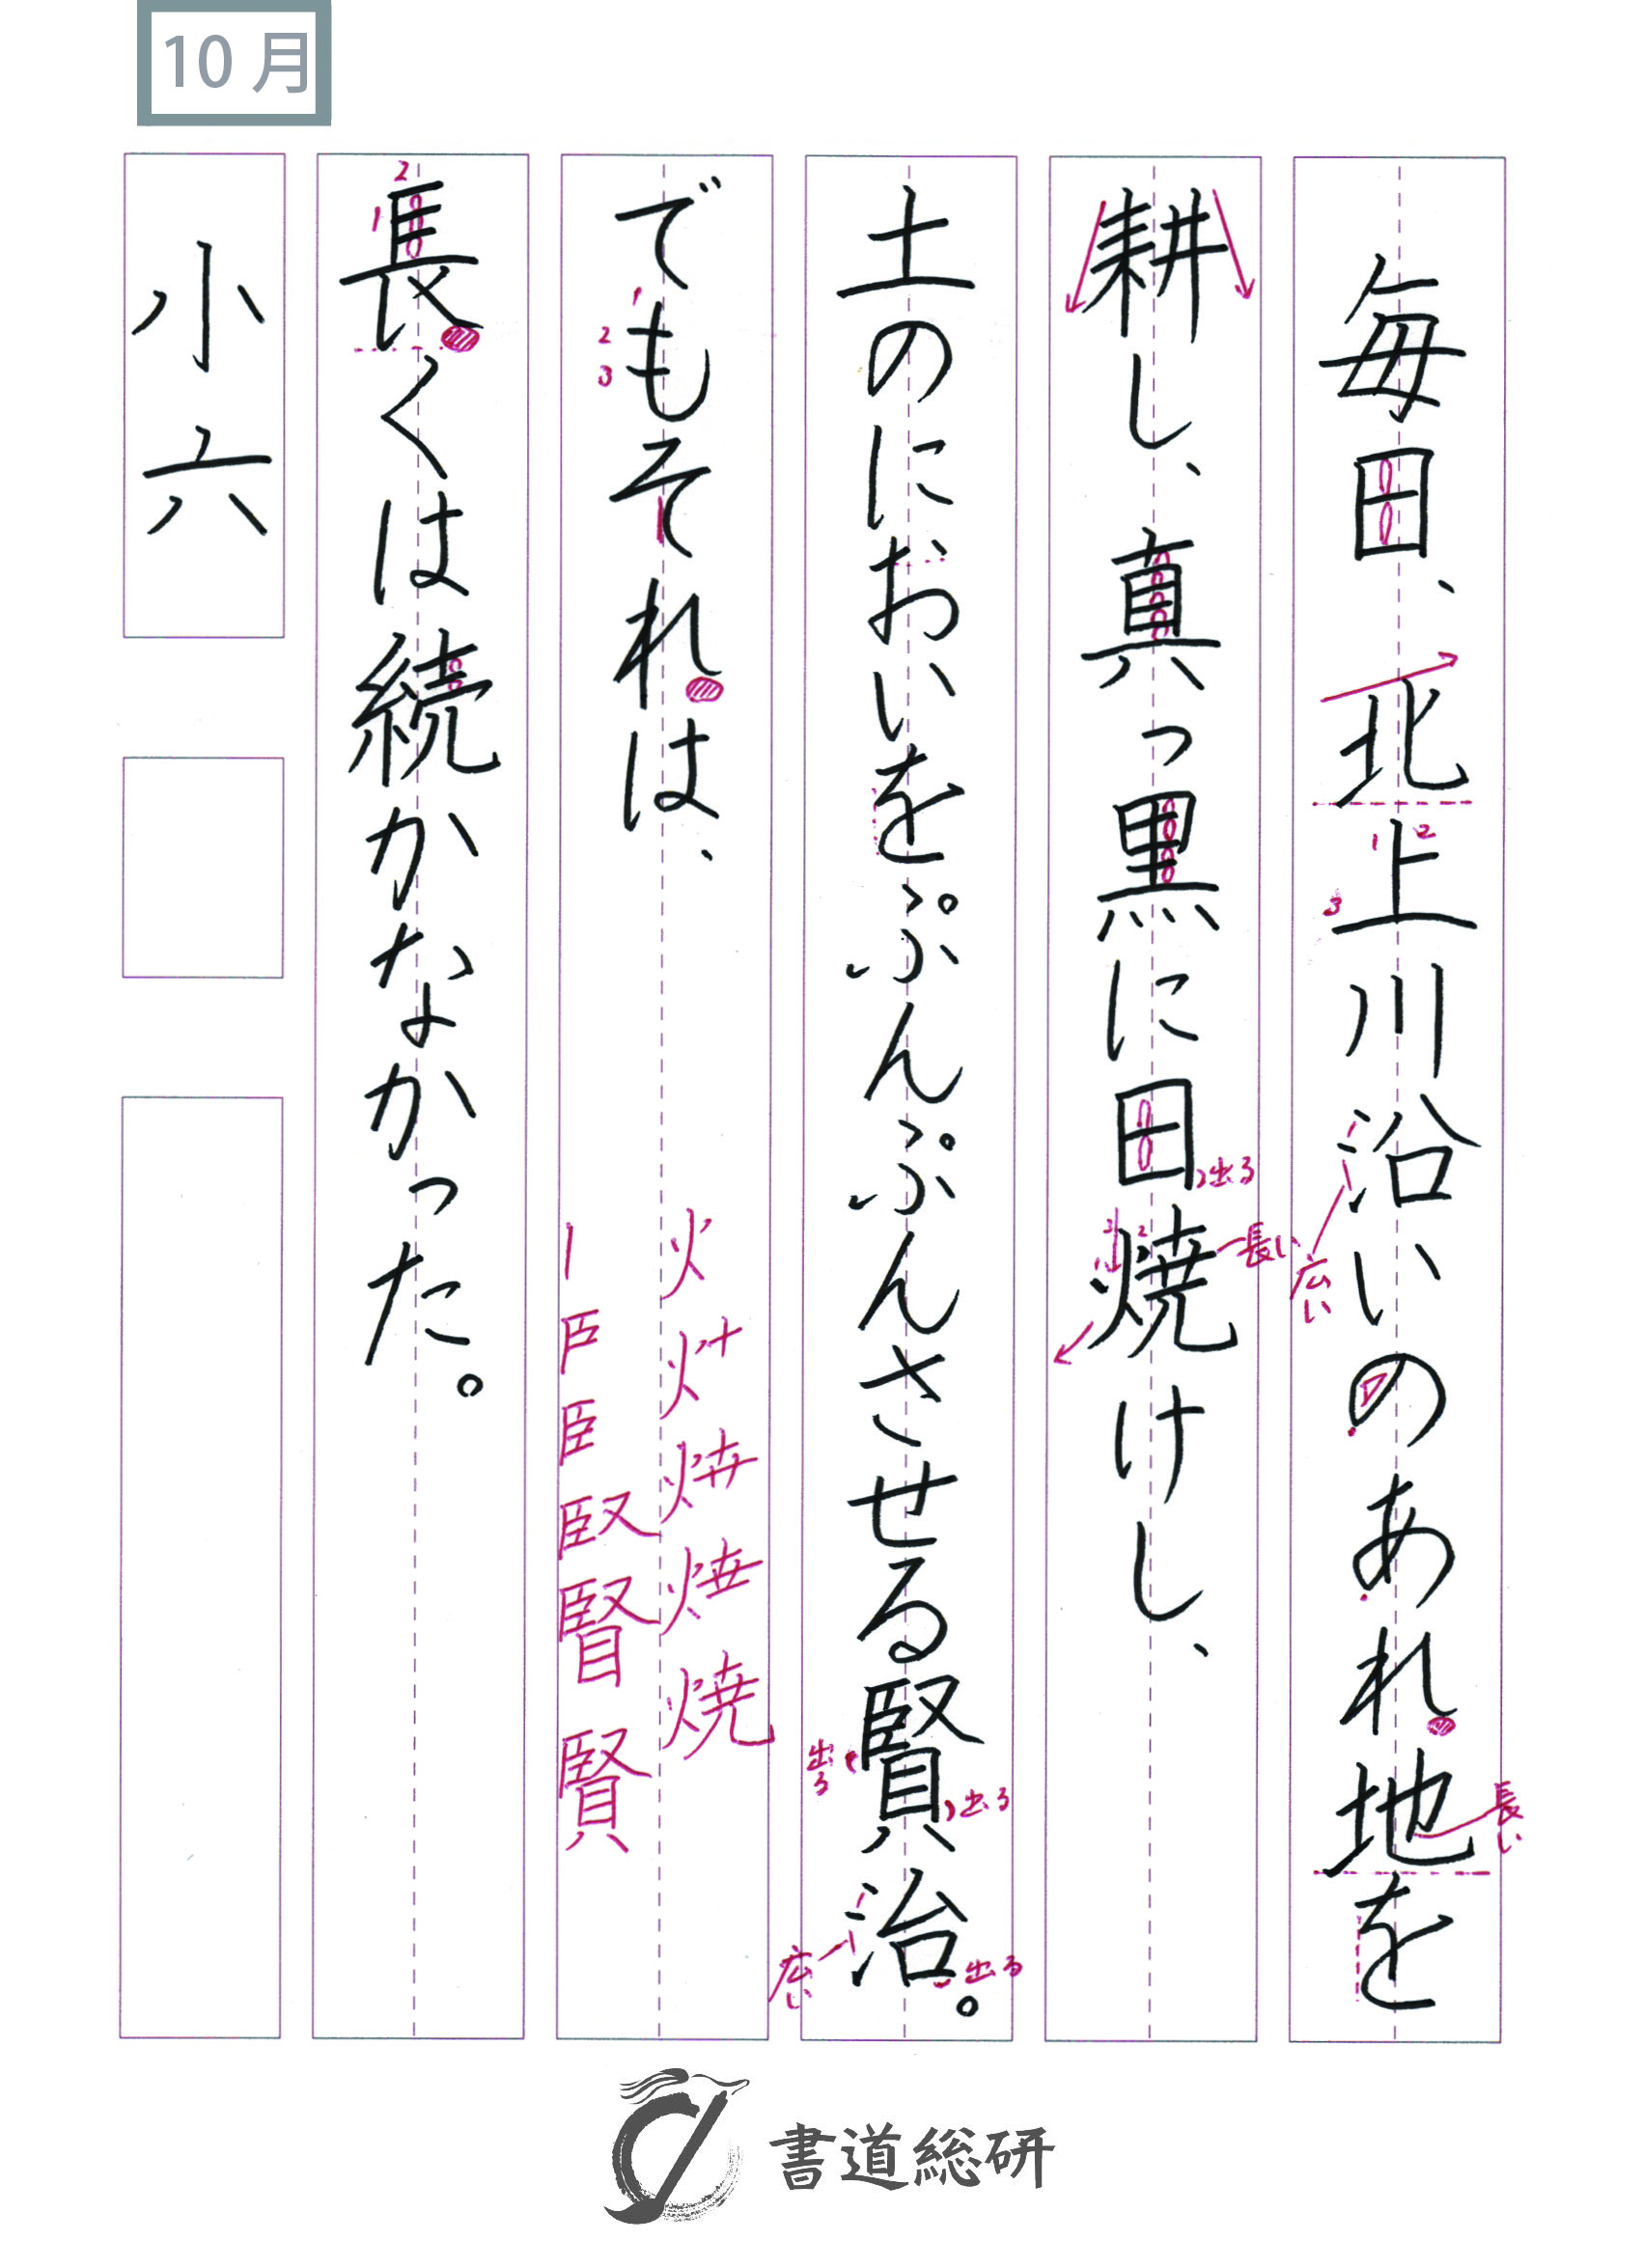 10月
毎日、北上川沿いのあれ地を
耕し、真っ黒に日焼けし、
土のにおいをぷんぷんさせる賢治。
でもそれは、
長くは続かなかった。
小六
1 2
3
広い
長い
出る
長い
出る
出る
広い
出る
1
2
3
火 焼
臣 賢
2
1
書道総研